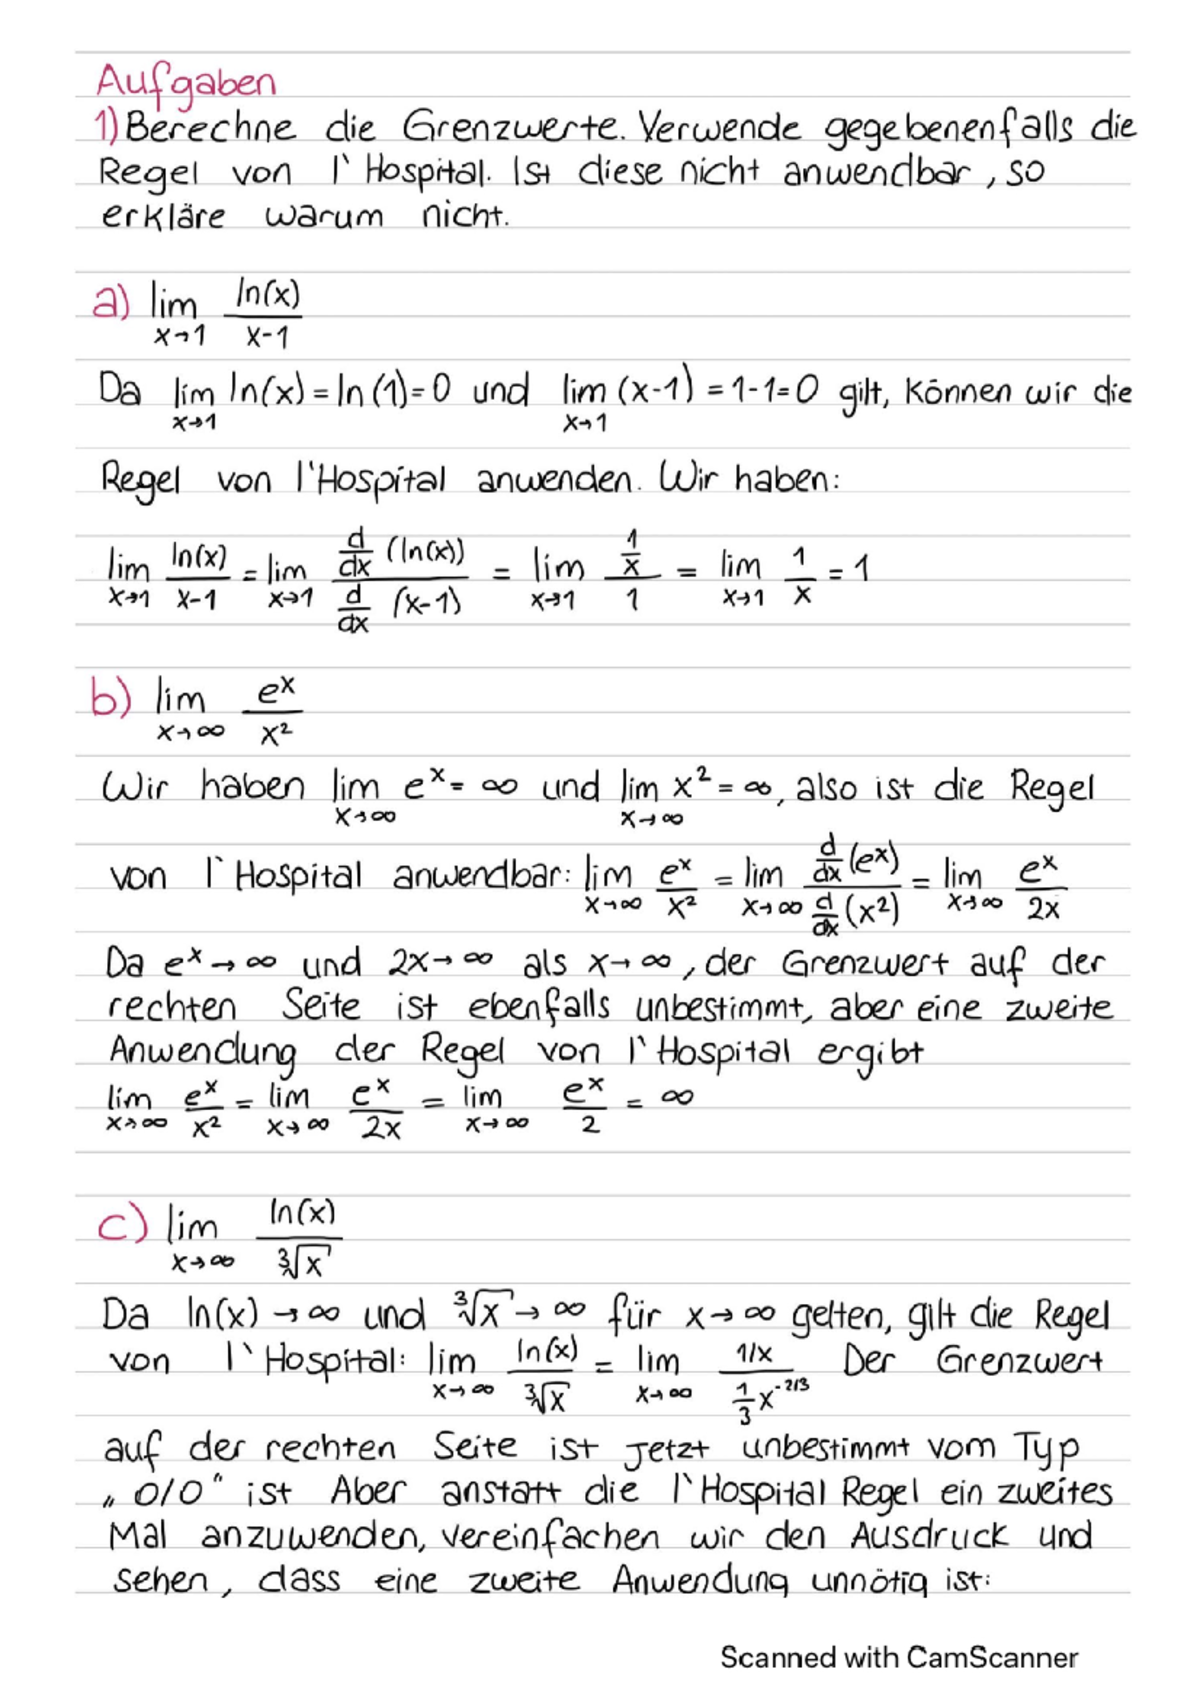 Aufgaben
1) Berechne die Grenzwerte. Verwende gegebenenfalls die
Regel von l` Hospital. Ist diese nicht anwendbar, so
erkläre warum nicht.
a) lim x→1 ln(x)/(x-1)
Da lim x→1 ln(x) = ln(1) = 0 und lim x→1 (x-1) = 1-1=0 gilt, können wir die
Regel von l'Hospital anwenden. Wir haben:
lim x→1 ln(x)/(x-1) = lim x→1 (d/dx (ln(x)))/(d/dx (x-1)) = lim x→1 (1/x)/1 = lim x→1 1/x = 1
b) lim x→∞ eˣ/x²
Wir haben lim x→∞ eˣ = ∞ und lim x→∞ x² = ∞, also ist die Regel
von l` Hospital anwendbar: lim x→∞ eˣ/x² = lim x→∞ (d/dx (eˣ))/(d/dx (x²)) = lim x→∞ eˣ/2x
Da eˣ → ∞ und 2x → ∞ als x → ∞, der Grenzwert auf der
rechten Seite ist ebenfalls unbestimmt, aber eine zweite
Anwendung der Regel von l` Hospital ergibt
lim x→∞ eˣ/x² = lim x→∞ eˣ/2x = lim x→∞ eˣ/2 = ∞
c) lim x→∞ ln(x)/∛x
Da ln(x) → ∞ und ∛x → ∞ für x → ∞ gelten, gilt die Regel
von l` Hospital: lim x→∞ ln(x)/∛x = lim x→∞ (1/x)/(1/3 x^-2/3) Der Grenzwert
auf der rechten Seite ist jetzt unbestimmt vom Typ
„0/0" ist Aber anstatt die l`Hospital Regel ein zweites
Mal anzuwenden, vereinfachen wir den Ausdruck und
sehen, dass eine zweite Anwendung unnötig ist:
Scanned with CamScanner